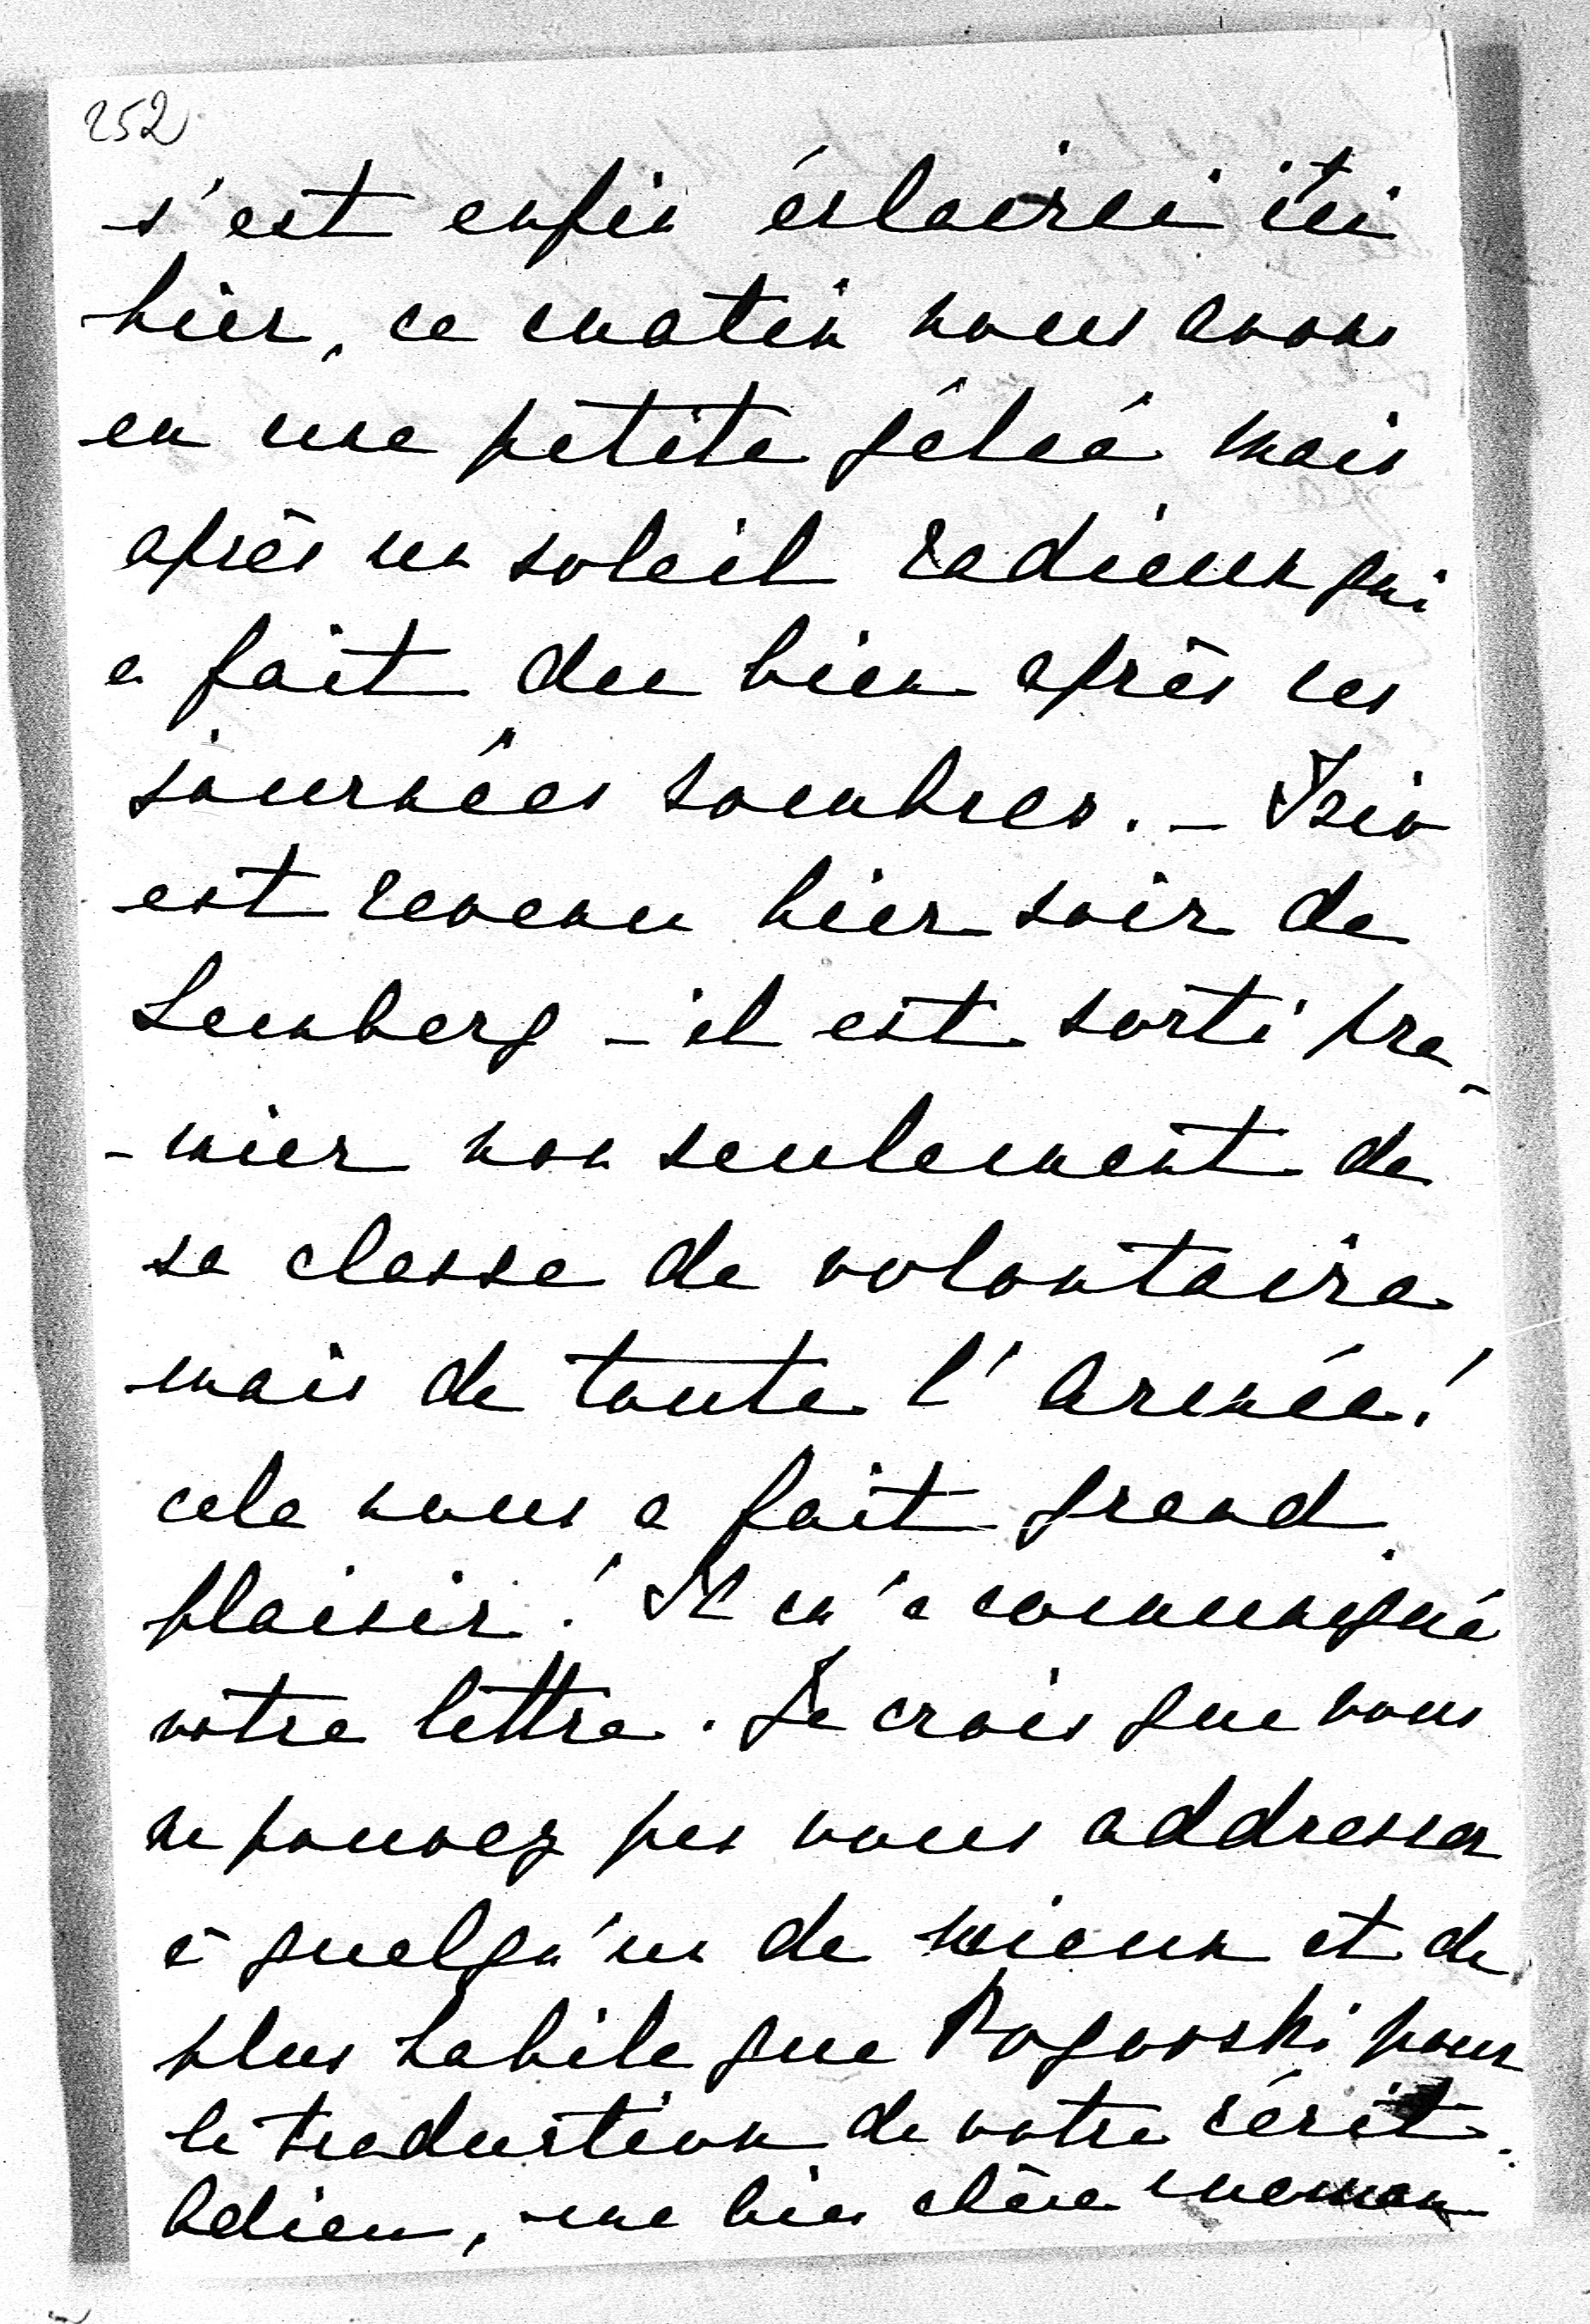 252
s'est enfin éclairci ici
hier, ce matin nous avons
eu une petite gélée mais
après un soleil radieux qui
a fait du bien après ces
journées sombres. – Izio
est revenu hier soir de
Lemberg – il est sorti pre-
-mier non seulement de
sa classe de volontaire
mais de toute l'armée!
cela nous a fait grand
plaisir! Il m'a communiqué
votre lettre. Je crois que vous
ne pouvez pas vous addresser
à quelqu'un de mieux et de
plus habile que Rogowski pour
la traduction de votre récit.
Adieu, ma bien chère maman